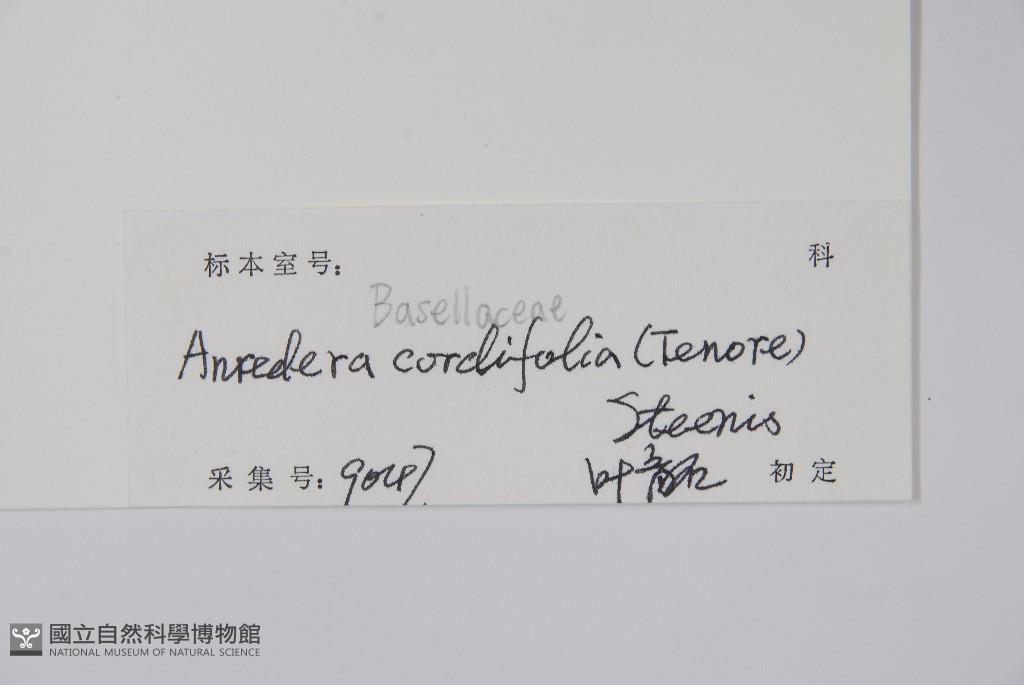 标本室号： 科
Basellaceae
Anredera cordifolia (Tenore)
Steenis
采集号：9047 叶 初定
國立自然科學博物館
NATIONAL MUSEUM OF NATURAL SCIENCE